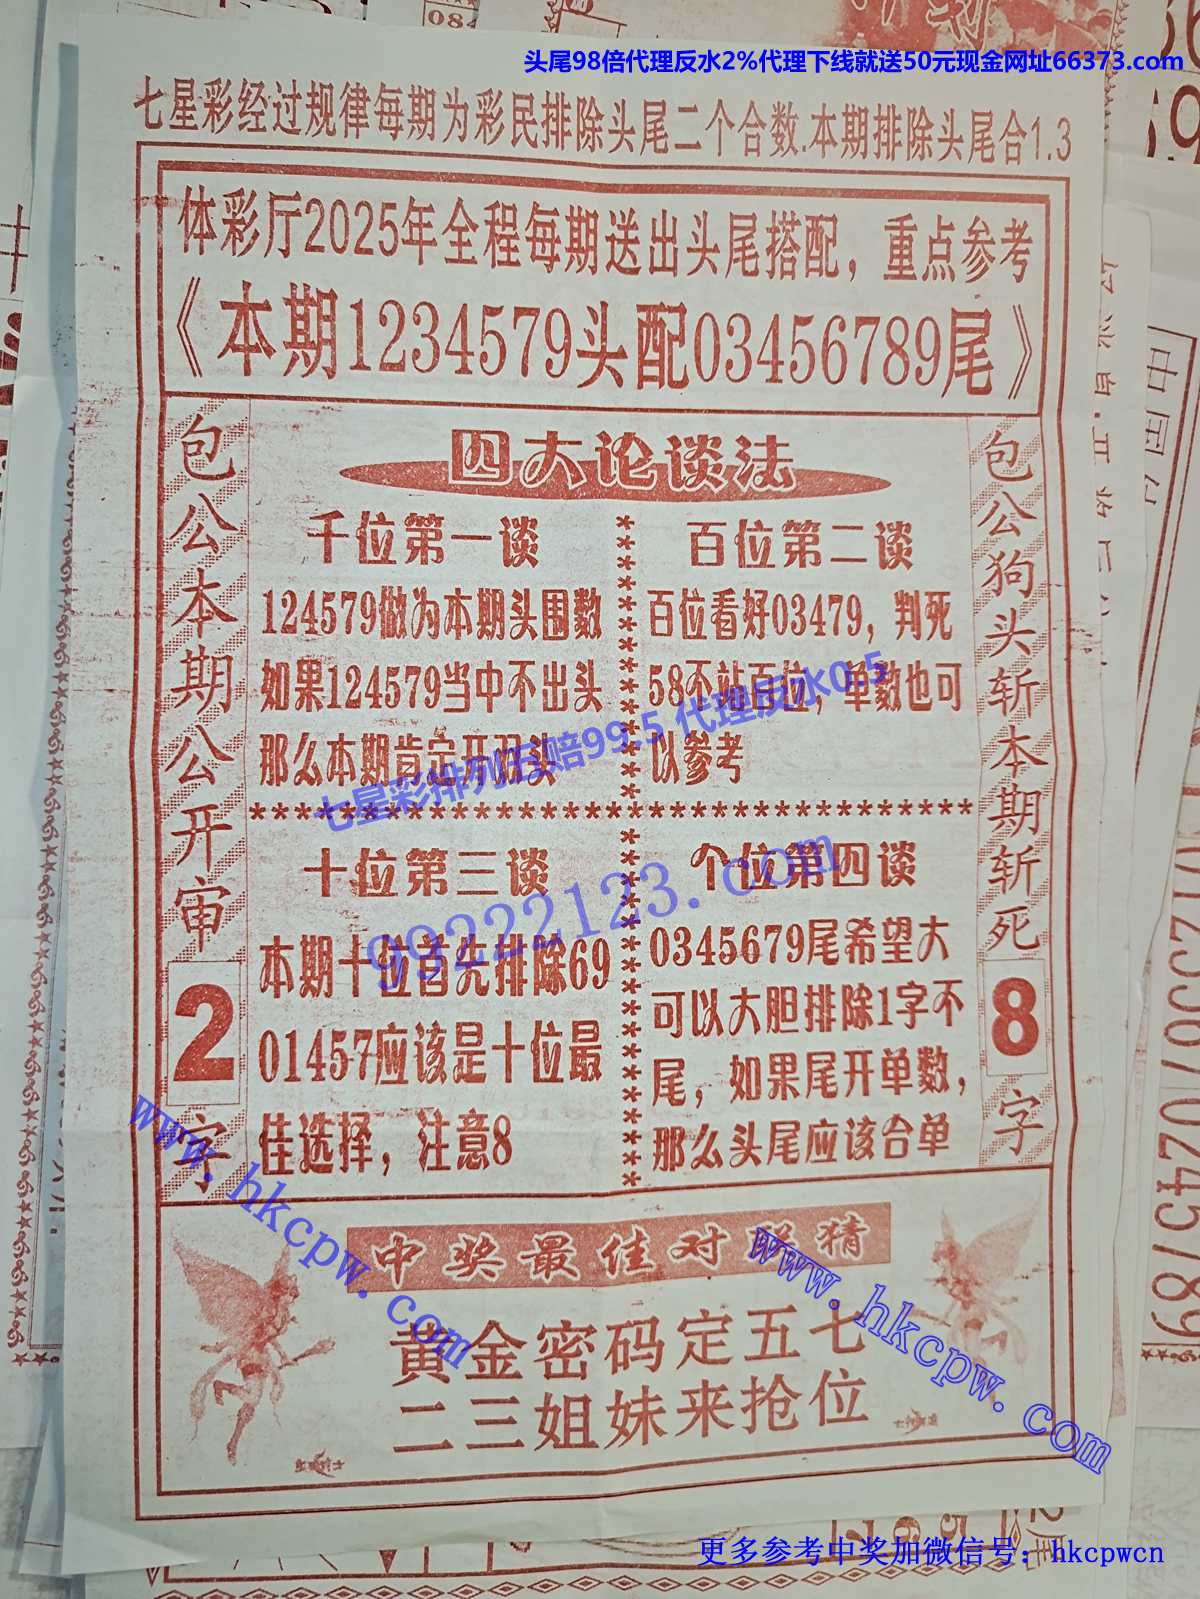 头尾98倍代理反水2%代理下线就送50元现金网址66373.com
七星彩经过规律每期为彩民排除头尾二个合数.本期排除头尾合1.3
体彩厅2025年全程每期送出头尾搭配，重点参考
《本期1234579头配03456789尾》
包公本期公开审2字
四大论谈法
千位第一谈
124579做为本期头围数
如果124579当中不出头
那么本期肯定开双头
百位第二谈
百位看好03479，判死
58不站百位，单数也可
以参考
七星彩排列五赔99.5 代理反水0.5
十位第三谈
本期十位首先排除69
01457应该是十位最
佳选择，注意8
个位第四谈
0345679尾希望大
可以大胆排除1字不
尾，如果尾开单数，
那么头尾应该合单
99222123.com
包公狗头斩本期斩死8字
www.hkcpw.com
www.hkcpw.com
中奖最佳对联猜
黄金密码定五七
二三姐妹来抢位
更多参考中奖加微信号：hkcpwcn